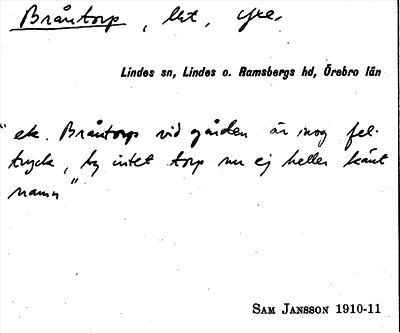 Bråntorp, lht,
Lindes sn, Lindes o. Ramsbergs hd, Örebro län
"ek. Bråntorp vid gården är inog fel-
tryck, ty intet torp nu ej heller känt
namn"
SAM JANSSON 1910-11